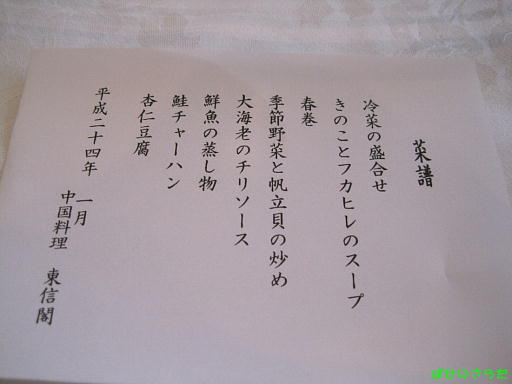 菜譜
冷菜の盛合せ
きのことフカヒレのスープ
春巻
季節野菜と帆立貝の炒め
大海老のチリソース
鮮魚の蒸し物
鮭チャーハン
杏仁豆腐
平成二十四年 一月
中国料理 東信閣